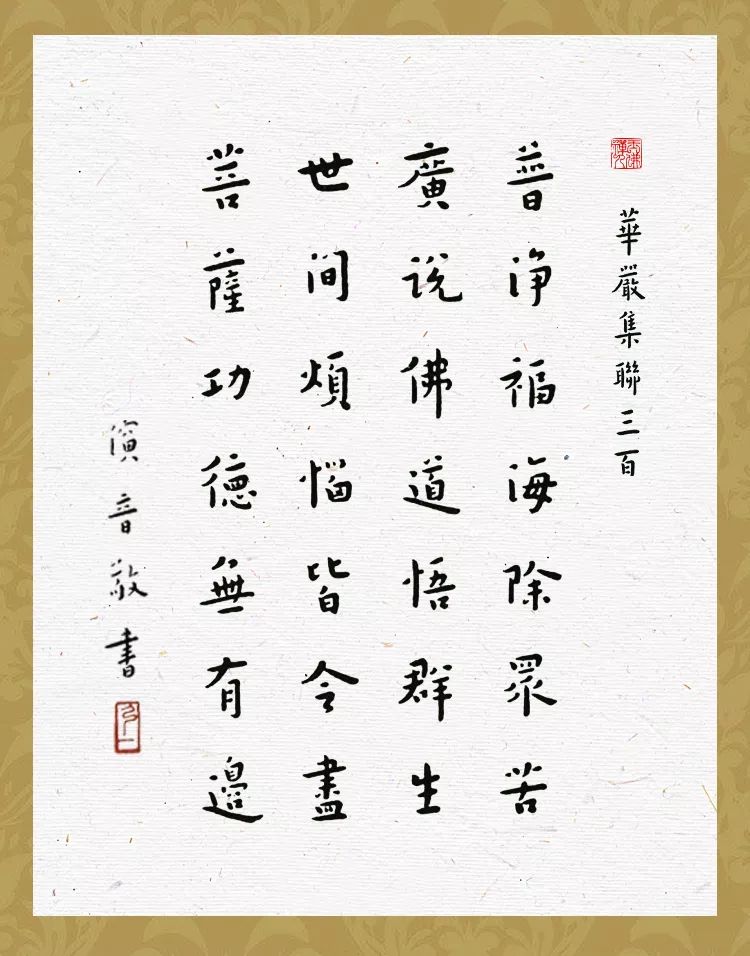 華嚴集聯三百
普淨福海除眾苦
廣說佛道悟群生
世間煩惱皆令盡
菩薩功德無有邊
演音敬書
弘一